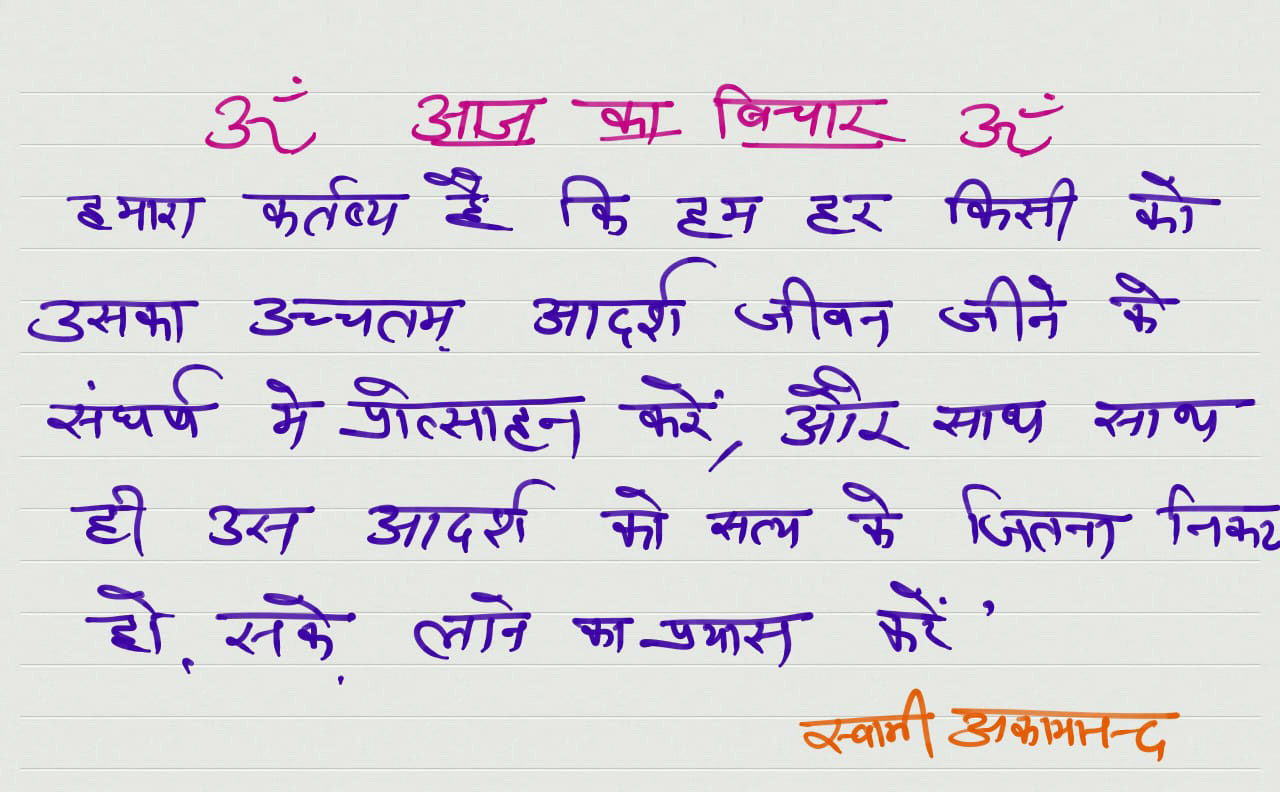 ॐ आज का विचार ॐ
हमारा कर्तव्य है कि हम हर किसी को
उसका उच्चतम आदर्श जीवन जीने के
संघर्ष मे प्रोत्साहन करें, और साथ साथ
ही उस आदर्श को सत्य के जितना निकट
हो सके लाने का प्रयास करें '
स्वामी अकामानन्द